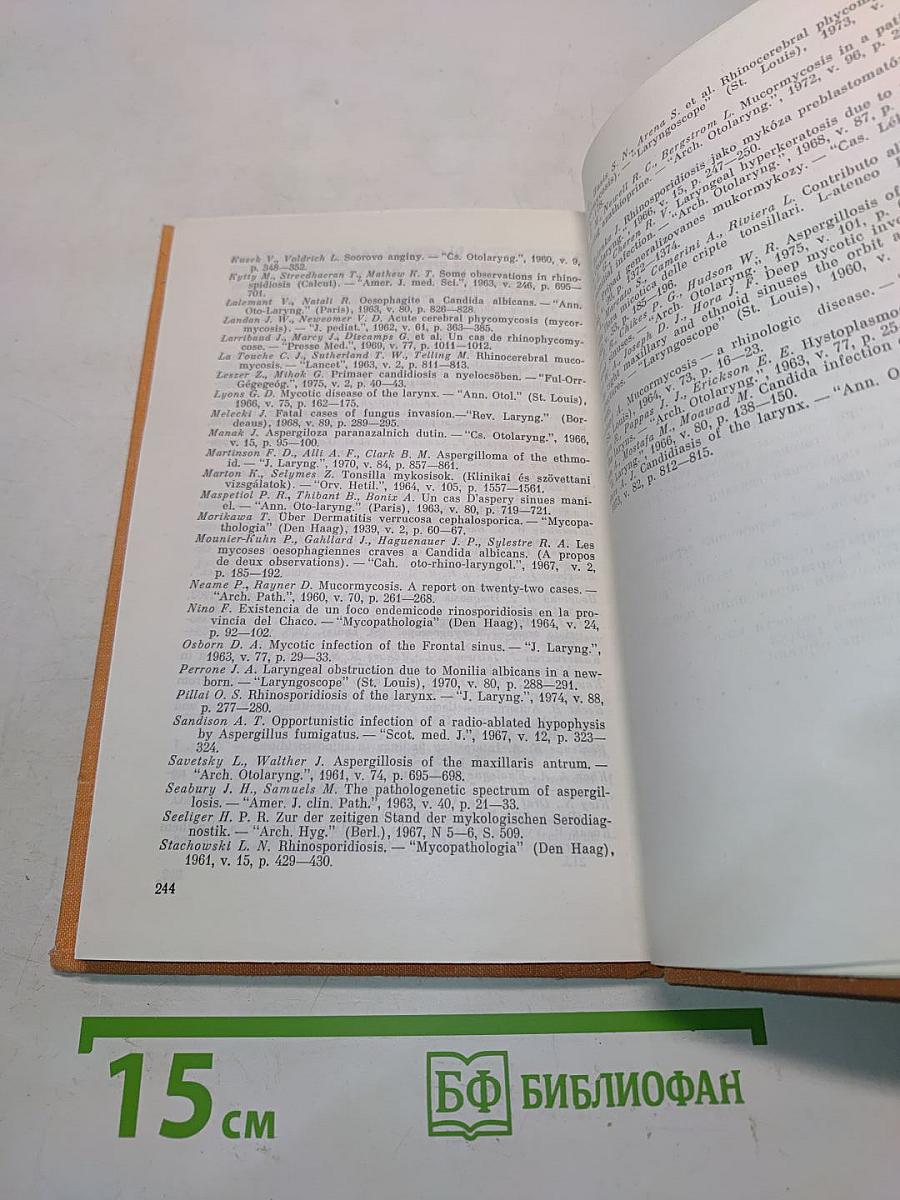 Kusek V., Voldrich L. Soorovo anginy. — "Čs. Otolaryng.", 1960, v. 9,
p. 348—352.
Kytty M., Streedhaeran T., Mathew K. T. Some observations in rhino-
spidiosis (Calcut). — "Amer. J. med. Sci.", 1963, v. 246, p. 695—
701.
Lalemant V., Natali R. Oesophagite a Candida albicans. — "Ann.
Oto-Laryng." (Paris), 1963, v. 80, p. 826—828.
Landan J. W., Newcomer V. D. Acute cerebral phycomycosis (mycor-
mycosis). — "J. pediat.", 1962, v. 61, p. 363—385.
Larribaud J., Marcy J., Discamps G. et al. Un cas de rhinophycomy-
cose. — "Presse Med.", 1969, v. 77, p. 1011—1012.
La Touche C. J., Sutherland T. W., Telling M. Rhinocerebral muco-
mycosis. — "Lancet", 1963, v. 2, p. 811—813.
Leszer Z., Mihok G. Primaer candidiosis a nyelocsöben. — "Ful-Orr-
Gégegeóg.", 1975, v. 2, p. 40—43.
Lyons G. D. Mycotic disease of the larynx. — "Ann. Otol." (St. Louis),
1966, v. 75, p. 162—175.
Melecki J. Fatal cases of fungus invasion.—"Rev. Laryng." (Bor-
deaus), 1968, v. 89, p. 289—295.
Manak J. Aspergiloza paranazalnich dutin. — "Cs. Otolaryng.", 1966,
v. 15, p. 95—100.
Martinson F. D., Alli A. F., Clark B. M. Aspergilloma of the ethmo-
id. — "J. Laryng.", 1970, v. 84, p. 857—861.
Marton K., Selymes Z. Tonsilla mykosisok. (Klinikai és szövettani
vizsgálatok). — "Orv. Hetil.", 1964, v. 105, p. 1557—1561.
Maspetiol P. R., Thibant B., Bonix A. Un cas D'aspery sinues mani-
el. — "Ann. Oto-laryng." (Paris), 1963, v. 80, p. 719—721.
Morikawa T. Über Dermatitis verrucosa cephalosporica. — "Mycopa-
thologia" (Den Haag), 1939, v. 2, p. 60—67.
Mounier-Kuhn P., Gahllard J., Haguenauer J. P., Sylestre R. A. Les
mycoses oesophagiennes craves a Candida albicans. (A propos
de deux observations). — "Cah. oto-rhino-laryngol.", 1967, v. 2,
p. 185—192.
Neame P., Rayner D. Mucormycosis. A report on twenty-two cases. —
"Arch. Path.", 1960, v. 70, p. 261—268.
Nino F. Existencia de un foco endemicode rinosporidiosis en la pro-
vincia del Chaco. — "Mycopathologia" (Den Haag), 1964, v. 24,
p. 92—102.
Osborn D. A. Mycotic infection of the Frontal sinus. — "J. Laryng.",
1963, v. 77, p. 29—33.
Perrone J. A. Laryngeal obstruction due to Monilia albicans in a new-
born. — "Laryngoscope" (St. Louis), 1970, v. 80, p. 288—291.
Pillai O. S. Rhinosporidiosis of the larynx. — "J. Laryng.", 1974, v. 88,
p. 277—280.
Sandison A. T. Opportunistic infection of a radio-ablated hypophysis
by Aspergillus fumigatus. — "Scot. med. J.", 1967, v. 12, p. 323—
324.
Savetsky L., Walther J. Aspergillosis of the maxillaris antrum. —
"Arch. Otolaryng.", 1961, v. 74, p. 695—698.
Seabury J. H., Samuels M. The pathologenetic spectrum of aspergil-
losis. — "Amer. J. clin. Path.", 1963, v. 40, p. 21—33.
Seeliger H. P. R. Zur der zeitigen Stand der mykologischen Serodiag-
nostik. — "Arch. Hyg." (Berl.), 1967, N 5—6, S. 509.
Stachowski L. N. Rhinosporidiosis. — "Mycopathologia" (Den Haag),
1961, v. 15, p. 429—430.
244
S. N., Arena S. et al. Rhinocerebral
"Laryngoscope" (St. Louis), 1973, v.
Newell R. C., Bergstrom L. Mucormycosis in a
"Arch. Otolaryng.", 1972, v. 96, p.
J. Rhinosporidiosis jako mykóza
1966, v. 15, p. 247—250.
R. V. Laryngeal hyperkeratosis due to
"Arch. Otolaryng.", 1968, v. 87, p.
generalizovanes mukormykozy. — "Cas.
p. 1372—1374.
S. Camerini A., Riviera L. Contributo
micotica delle cripte tonsillari. L-ateneo
p. 185—196.
G., Hudson W. R. Aspergillosis of
"Arch. Otolaryng.", 1975, v. 101, p.
Joseph D. J., Hora J. F. Deep mycotic
maxillary and ethmoid sinuses the orbit
"Laryngoscope" (St. Louis), 1960, v.
Mucormycosis — a rhinologic disease. —
1964, v. 73, p. 16—23.
Pappas J. J., Erickson E. E.
"Arch. Otolaryng.", 1963, v. 77, p.
Mostafa M., Moawad M. Candida infection
1966, v. 80, p. 138—150.
Candidiasis of the larynx. — "Ann.
v. 82, p. 812—815.
15 см
БФ БИБЛИОФАН